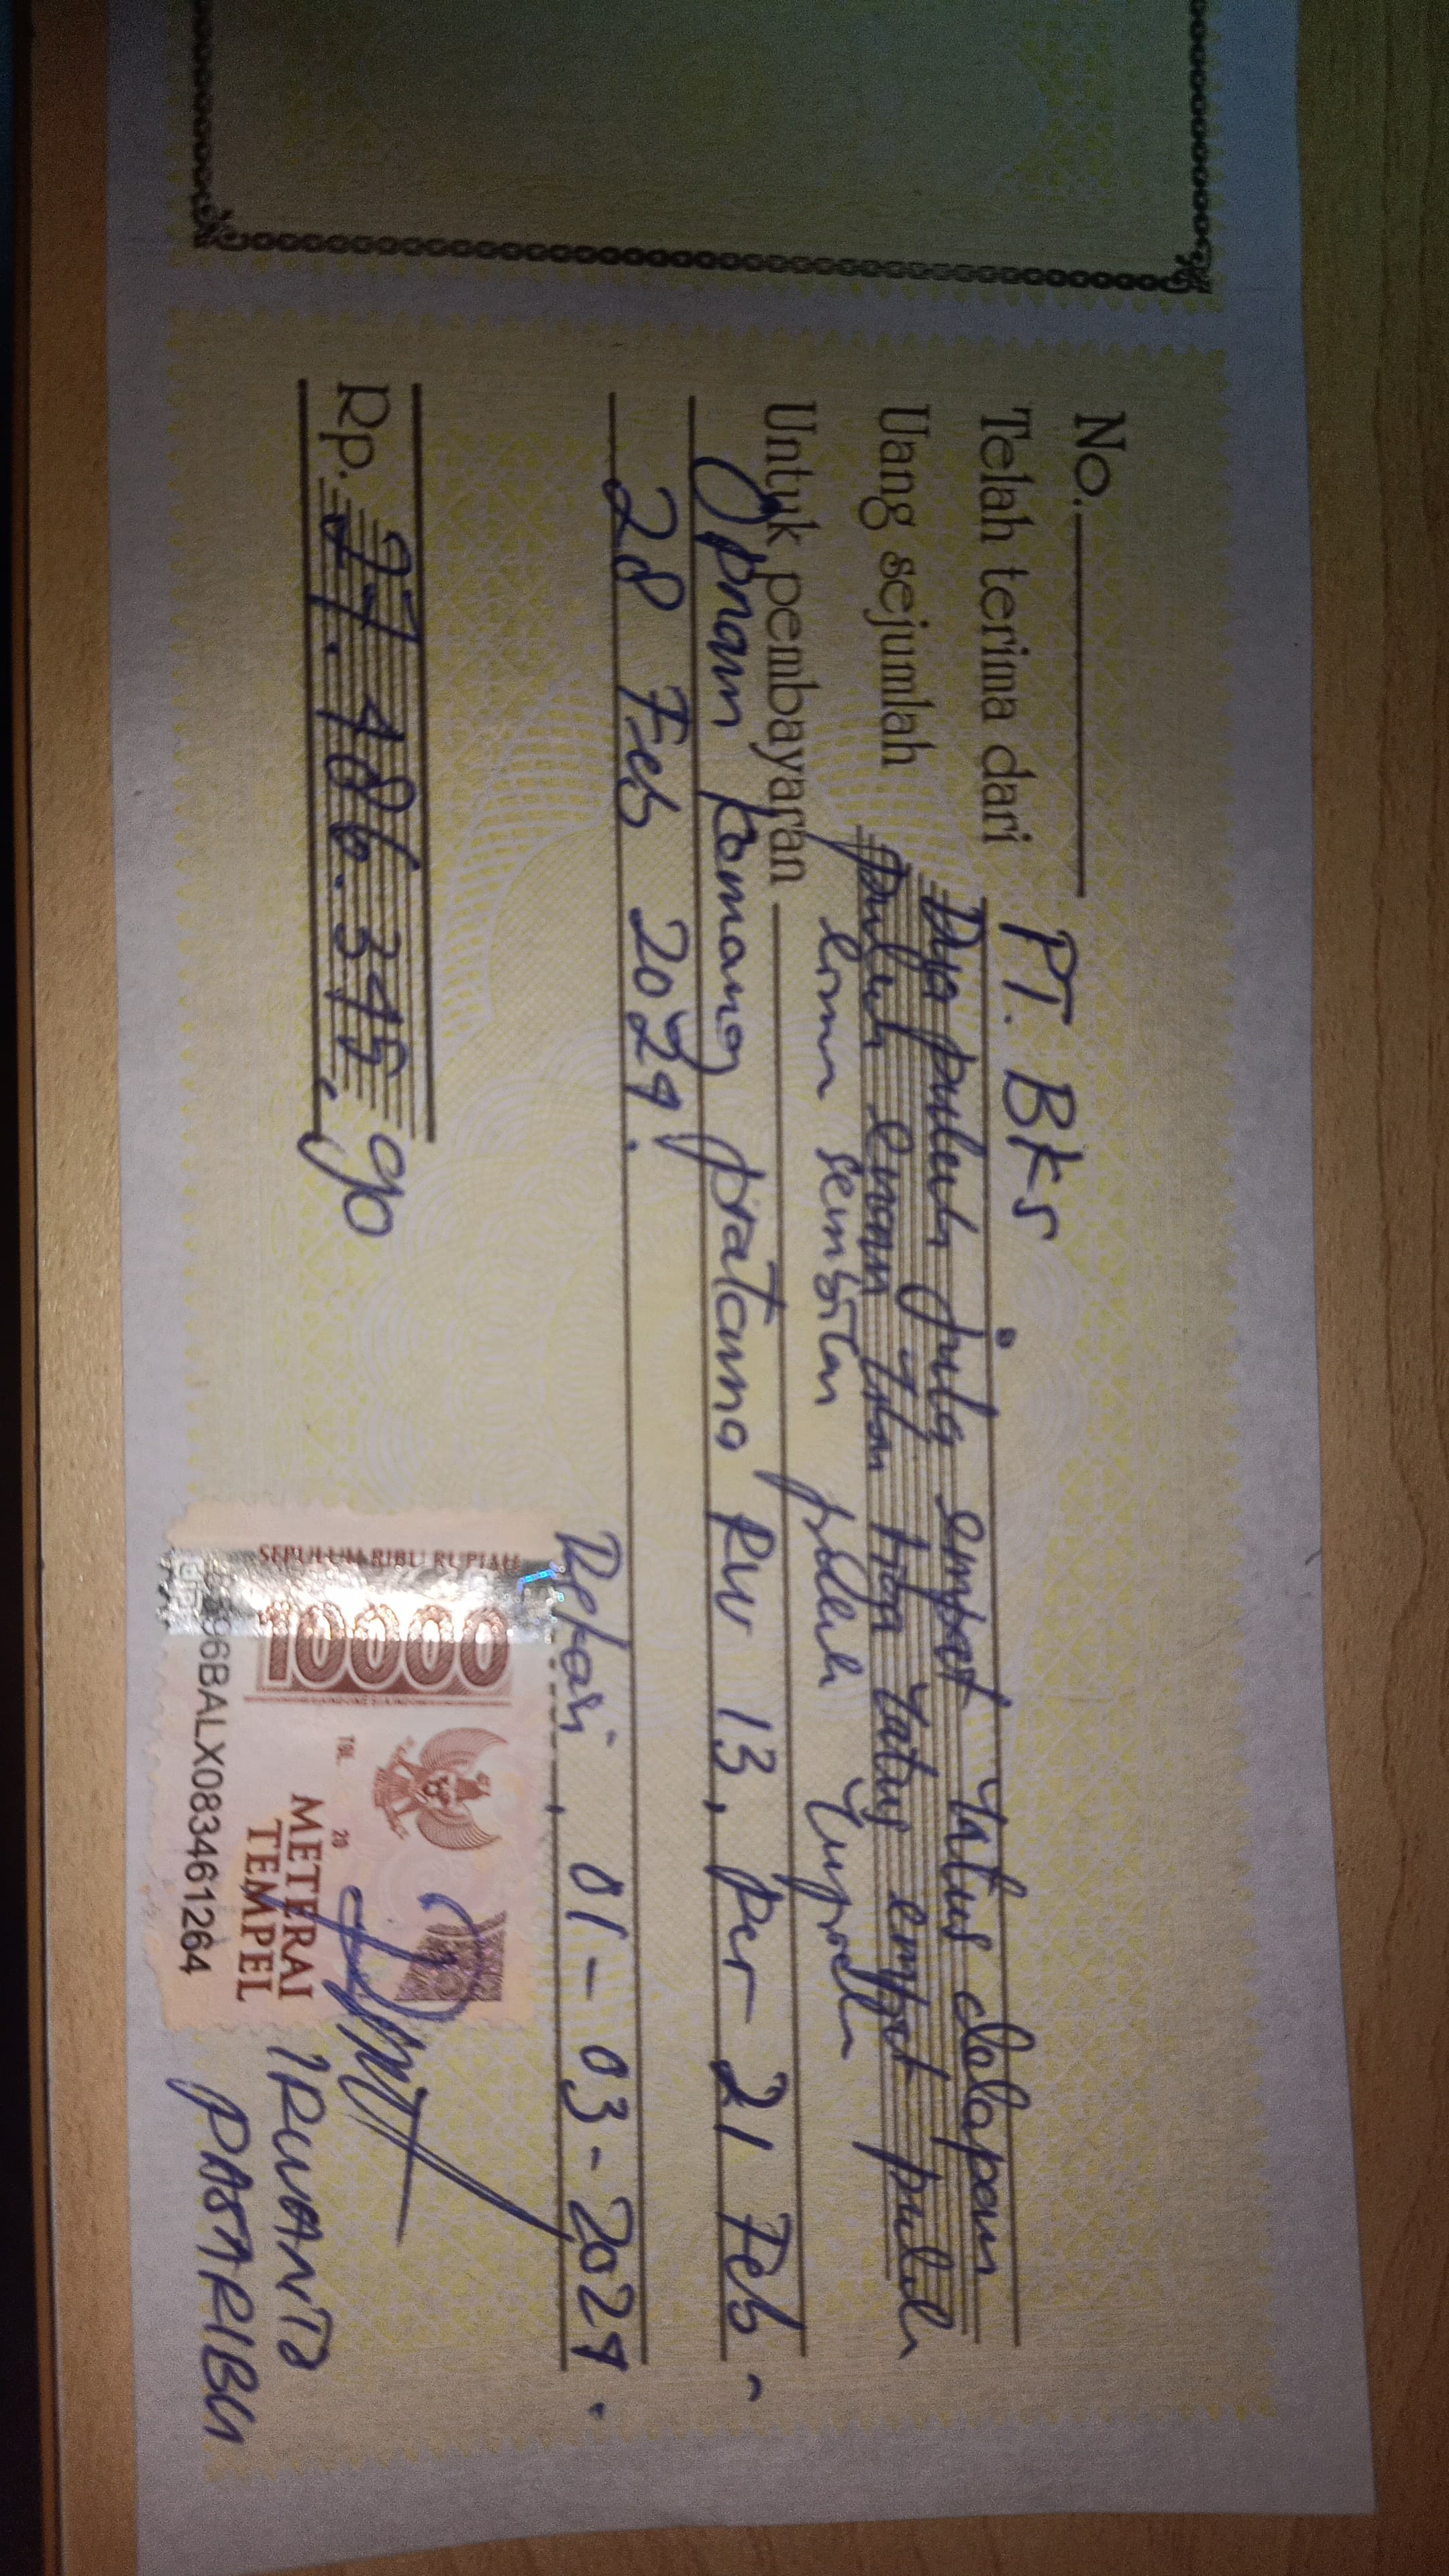 No.
Telah terima dari PT. BKS
Uang sejumlah Dua puluh juta empat ratus delapan
puluh enam ribu tiga ratus empat puluh
lima sembilan puluh rupiah
Untuk pembayaran
Opnam kemang pratama RW 13, per 21 Feb -
28 Feb 2024.
Bekasi, 01-03-2024.
Rp. 27.486.345,90
SEPULUH RIBU RUPIAH
10000
TGL 20
METERAI
TEMPEL
96BALX083461264
IRWANTO
PASARIBU